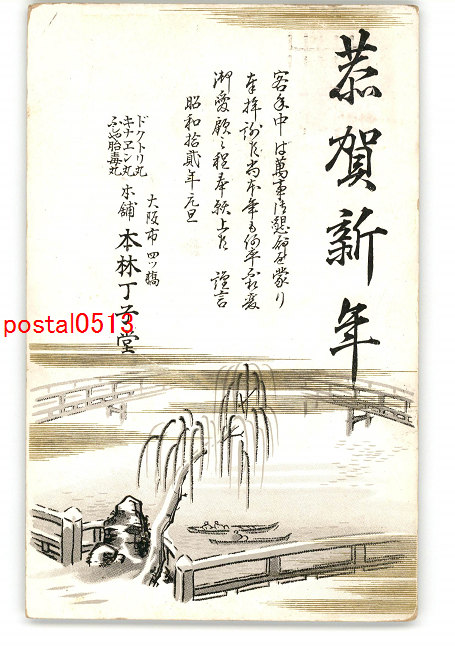 恭賀新年
客年中は萬事御懇命を蒙り
奉拝謝候尚本年も何卒不相変
御愛顧之程奉願上候 謹言
昭和拾貳年元旦
ドクトリ丸
キナエン丸
ふぢ胎毒丸
本舗
大阪市四ツ橋
本林丁子堂
postal0513